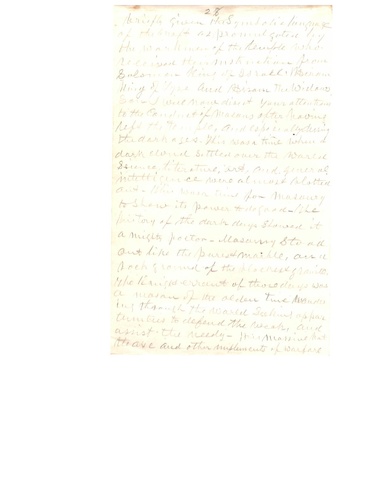 28
briefly given the Symbolic language
of the craft as promulgated by
the workmen of the temple who
received their instructions from
Solomon King of Israel Hiram
King of Tyre And Hiram the Widows
Son - I will now direct your attention
to the Conduct of Masons after leaving
the Temple, and especially during
the dark ages. This was a time when a
dark cloud settled over the World
Science Literature, art, and general
intelligence were almost blotted
out. This was time for Masonry
to Show its power to do good - the
history of the dark days showed it
a mighty factor - Masonry Stood
out like the pure Marble, on a
back ground of the blackest granite.
The Knight errant of those days was
a mason of the olden time wander
ing through the world Seeking oppor
tunities to defend the weak, and
assist the needy -
the axe and other implements of warfare